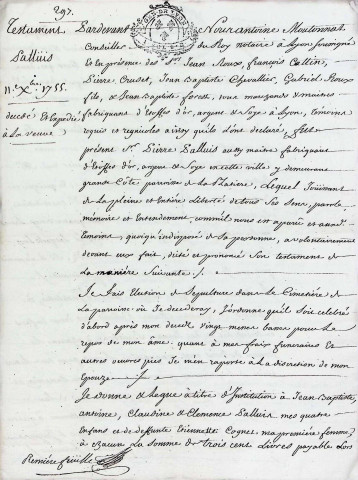 297.
Testament
Palluis
11e. Xbre. 1755.
decedé Expedié
à La veuve
Pardevant Nous antoine Moutonnat
Conseiller du Roy notaire à Lyon soussigné
Et la présence des Srs. Jean Roux, françois Cottin,
Pierre Crudet, Jean Baptiste Chevallier, Gabriel Roux
fils, & Jean Baptiste forest, tous marchands & maitres
fabriquants d'Etoffes d'or, argent & soye à Lyon, témoins
requis et
présent Sr. Pierre Palluis aussy maitre fabriquant
d'Etoffes d'or, argent & soye en cette ville y demeurant
grande Côte paroisse de La Platiere, Lequel Jouissant
de La pleine et Entiere Liberté de tous ses sens, parole
mémoire et Entendement, comme il nous en a paru et auxd.
temoins, quoiqu'indisposé de sa personne, a volontairement
devant eux fait, dicté et prononcé son testament de
La maniere suivante /.
Je fais Election de sepulture dans Le Cimetiére de
La paroisse où Je decederay, J'ordonne qu'il soit celebré
d'abord après mon decedz vingt messes basses pour Le
repos de mon âme, quant à mes frais funeraires et
autres œuvres pies Je m'en rapporte à La discretion de mon
Epouze
Je donne & Legue à titre d'Institution à Jean Baptiste,
antoine, Claudine & Clemence Palluis mes quatre
Enfans et de deffunte Etiennette Cognet ma premiere femme,
à chacun La somme de trois cent Livres payable Lors
Premiere feüille